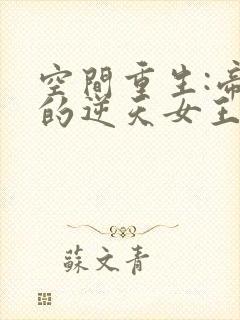 空間重生:帝
的逆天女王
蘇文青